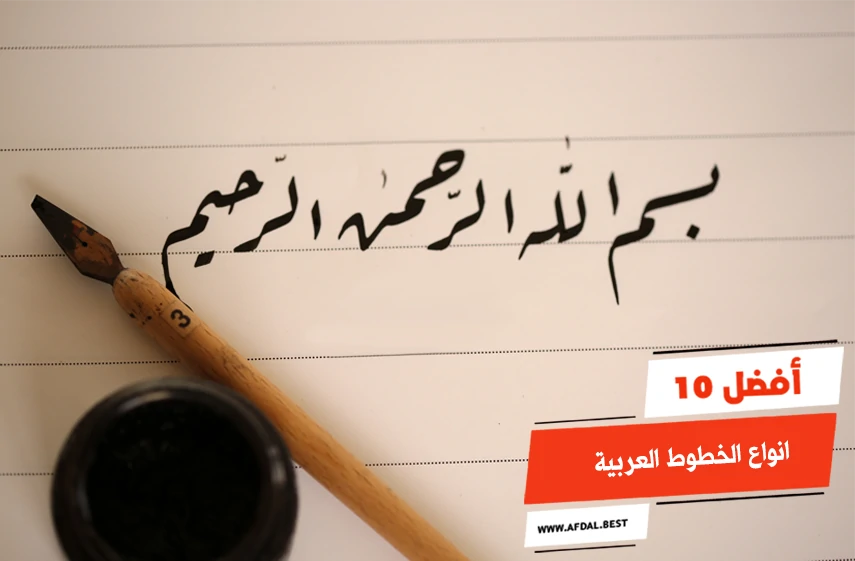 بسم الله الرحمن الرحيم
3
أفضل 10
انواع الخطوط العربية
WWW.AFDAL.BEST